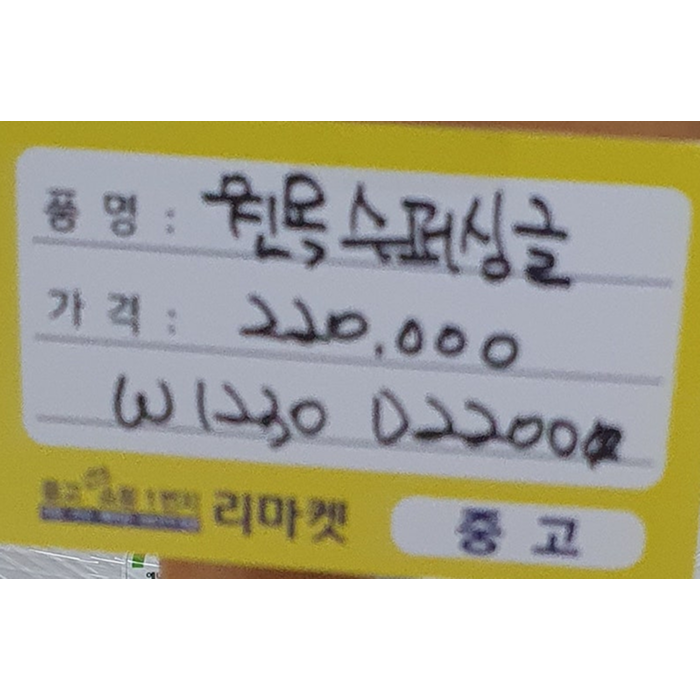 품 명 : 원목 수퍼싱글
가 격 : 220,000
W1230 D2200
리마켓
중 고